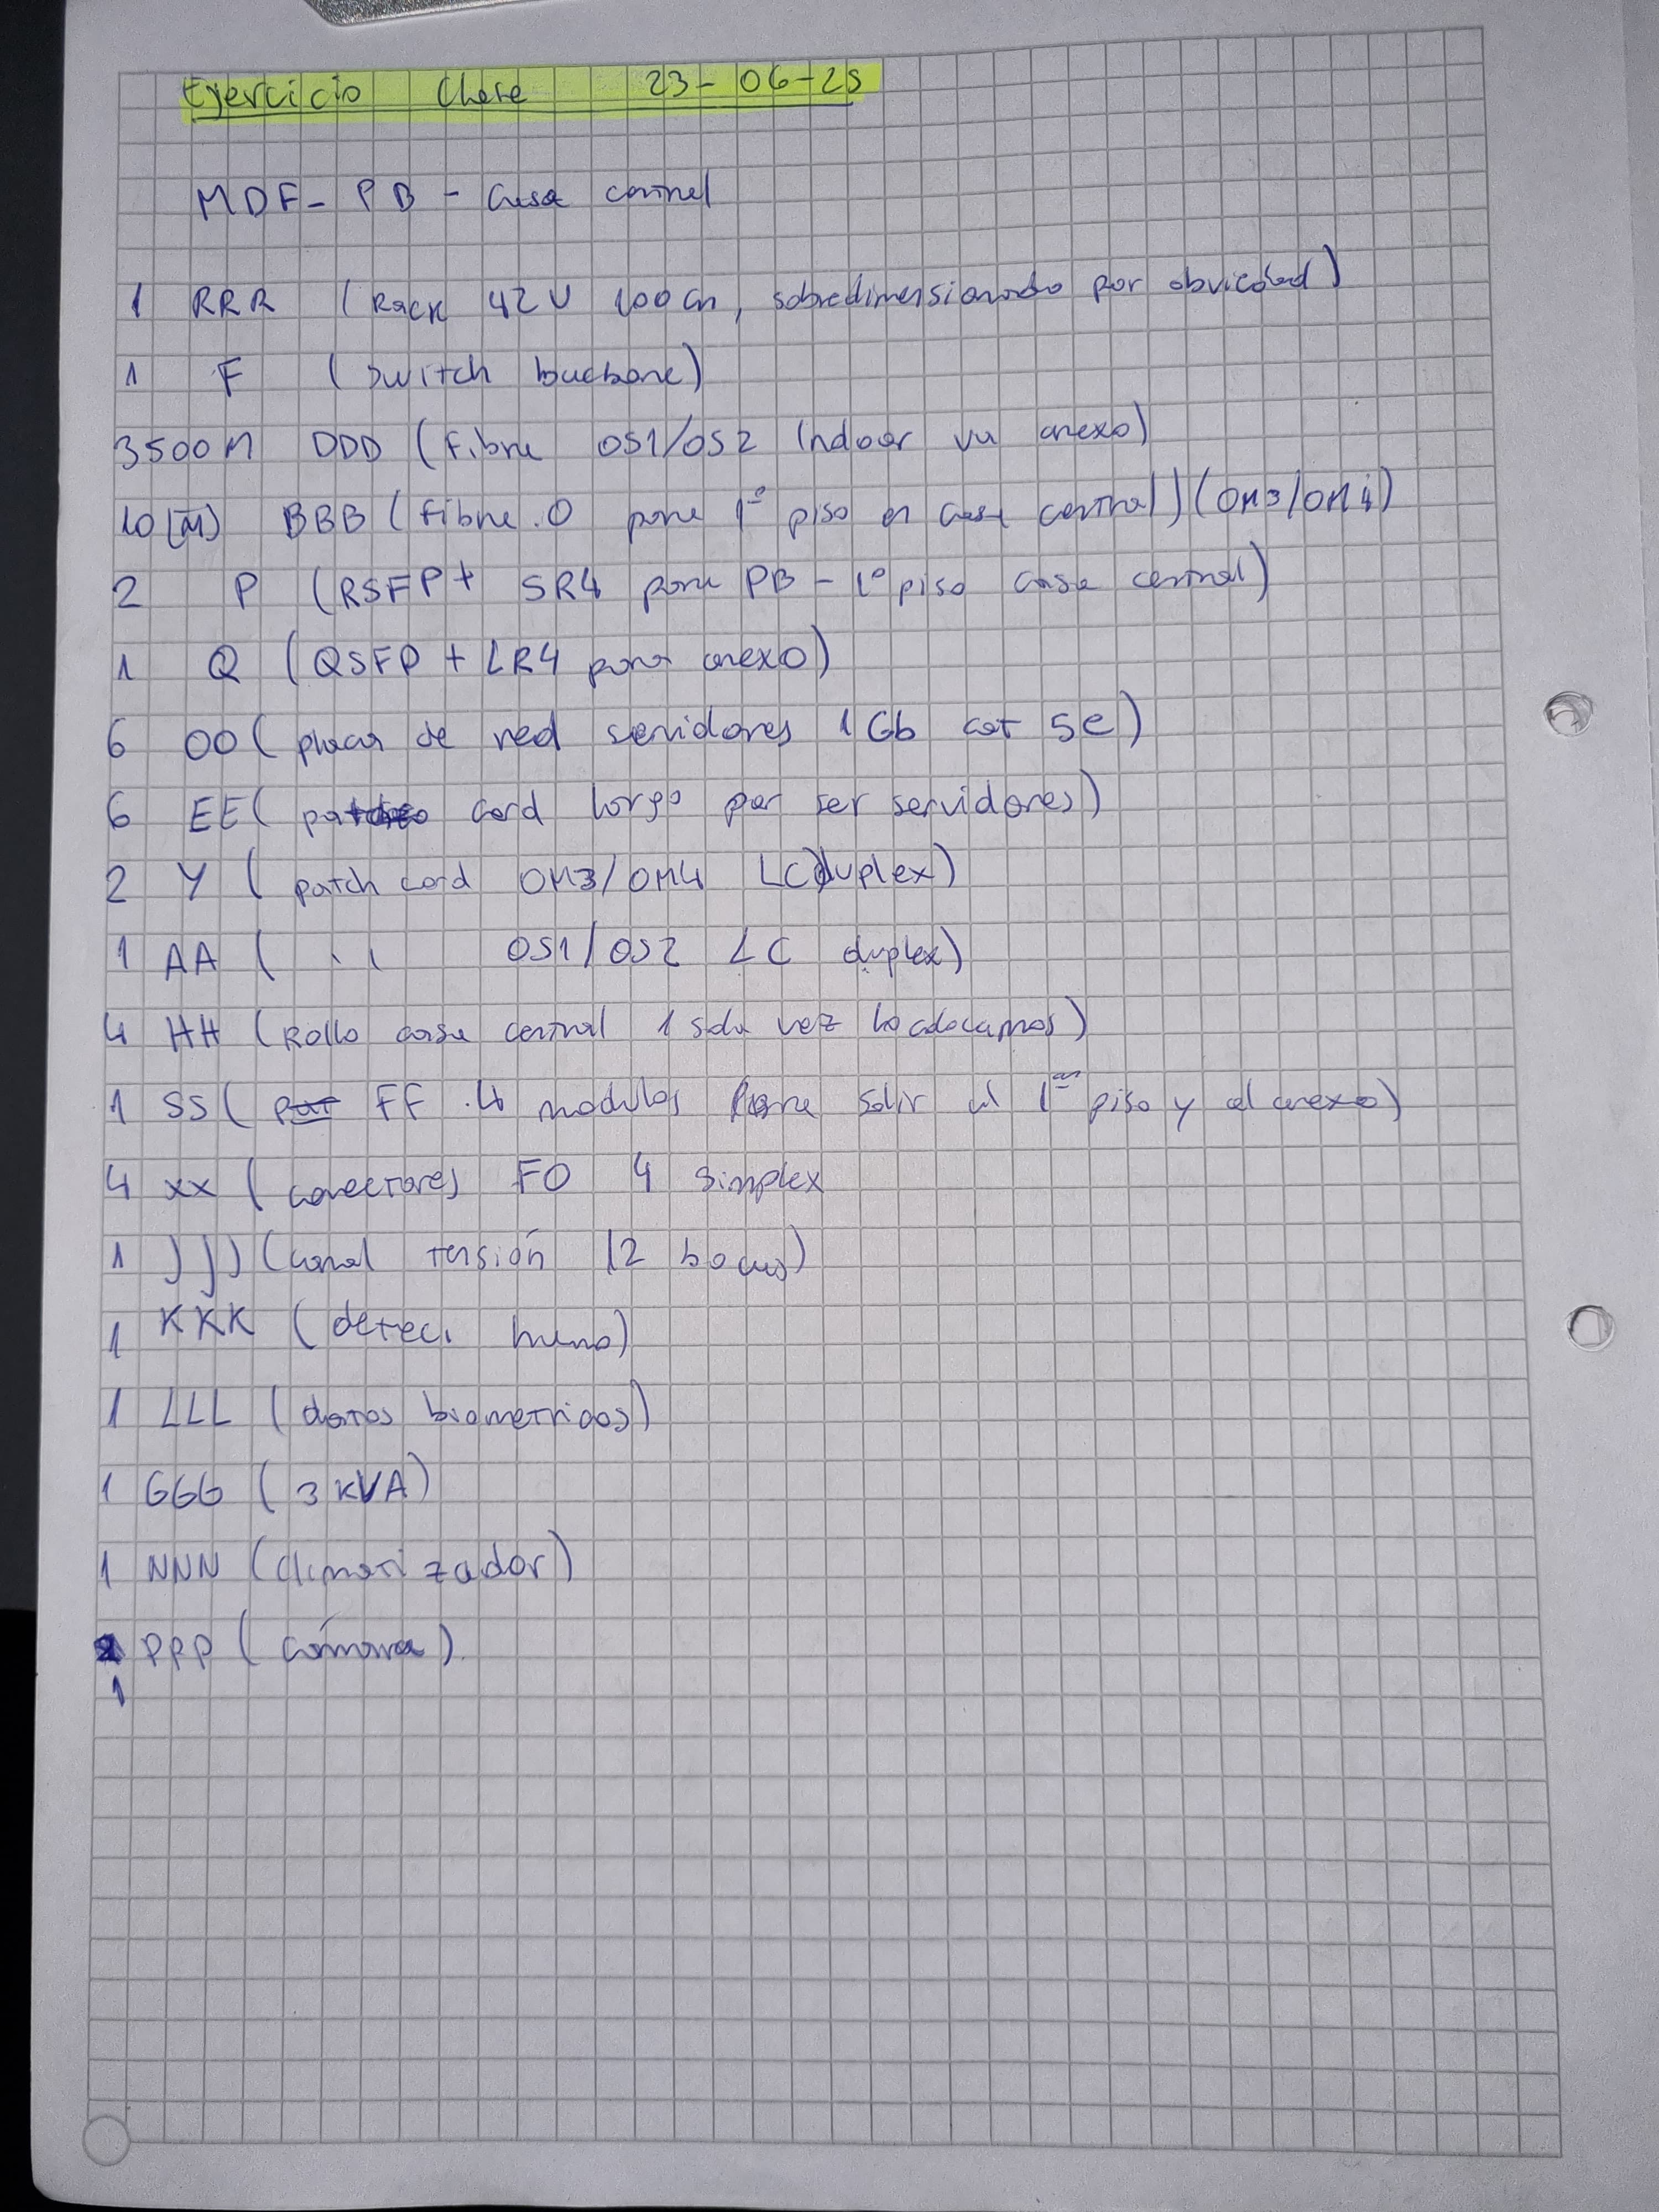 Ejercicio Clase 23-06-25
MDF- PB - Casa central
1 RRR (Rack 42U 100cm, sobredimensionado por obviedad)
1 F (switch backbone)
3500M DDD (Fibra OS1/OS2 Indoor va anexo)
10(M) BBB (Fibra.O para 1º piso en casa central) (OM3/OM4)
2 P (RSFP+ SR4 para PB - 1º piso casa central)
1 Q (QSFP + LR4 para anexo)
6 OO (placas de red servidores 1Gb cat 5e)
6 EE ( cord largo por ser servidores)
2 Y ( patch cord OM3/OM4 LC duplex)
1 AA ( '' OS1/OS2 LC duplex)
4 HH (Rollo casa central 1 sola vez lo colocamos)
1 SS ( FF .4 modulos para salir al 1er piso y al anexo)
4 xx ( conectores FO 4 simplex
1 JJJ (canal tensión 12 bocas)
1 KKK ( detec. humo)
1 LLL ( datos biometricos)
1 GGG ( 3 KVA)
1 NNN (climatizador)
PPP ( cámara)
1